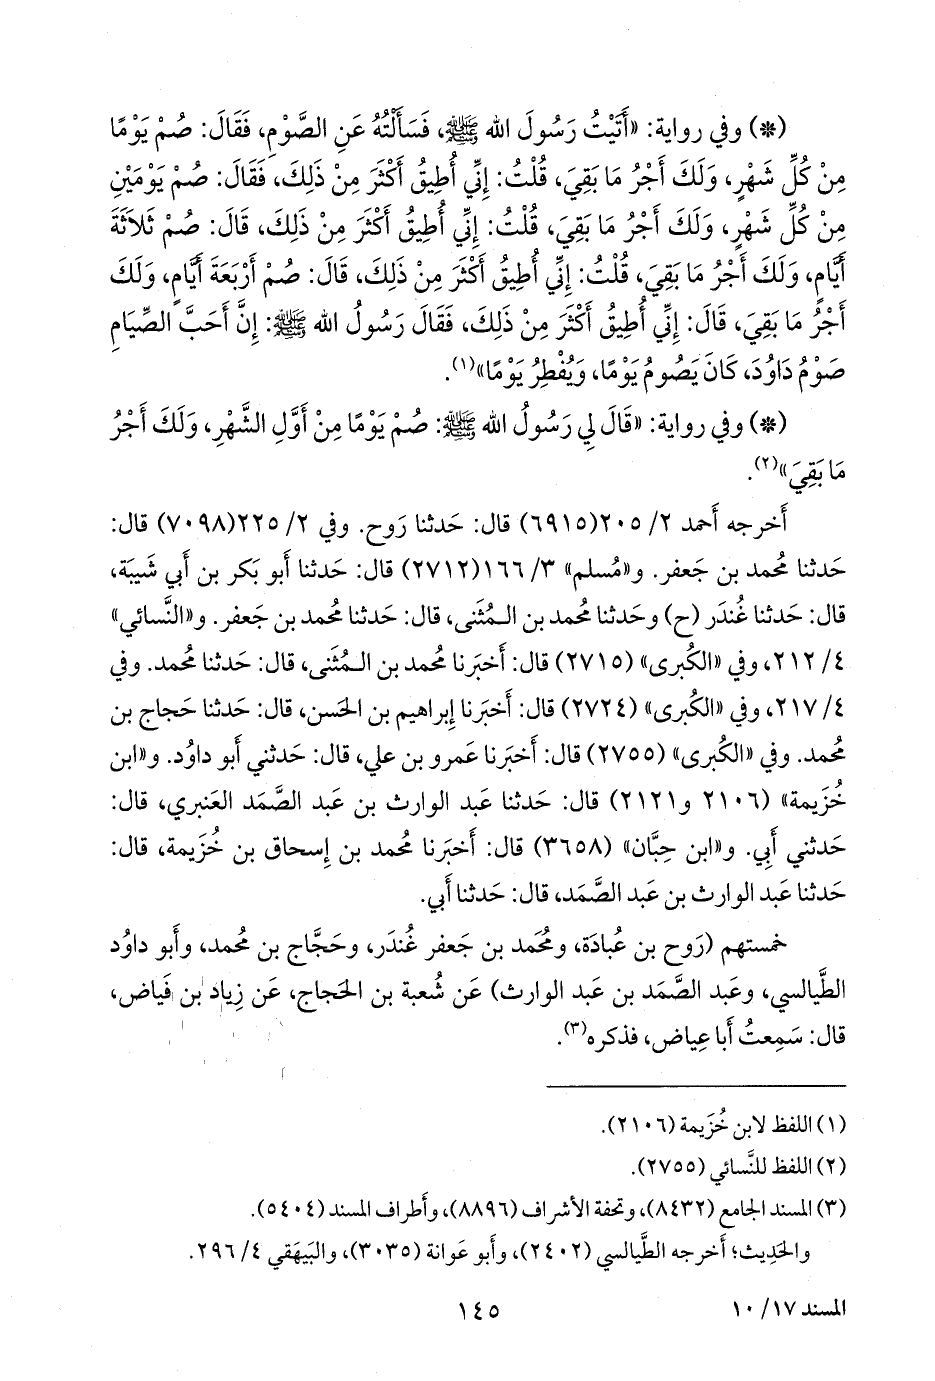 (*) وفي رواية: «أَتَيْتُ رَسُولَ الله ﷺ، فَسَأَلْتُهُ عَنِ الصَّوْمِ، فَقَالَ: صُمْ يَوْمًا
مِنْ كُلِّ شَهْرٍ، وَلَكَ أَجْرُ مَا بَقِيَ، قُلْتُ: إِنِّي أُطِيقُ أَكْثَرَ مِنْ ذَلِكَ، فَقَالَ: صُمْ يَوْمَيْنِ
مِنْ كُلِّ شَهْرٍ، وَلَكَ أَجْرُ مَا بَقِيَ، قُلْتُ: إِنِّي أُطِيقُ أَكْثَرَ مِنْ ذَلِكَ، قَالَ: صُمْ ثَلَاثَةَ
أَيَّامٍ، وَلَكَ أَجْرُ مَا بَقِيَ، قُلْتُ: إِنِّي أُطِيقُ أَكْثَرَ مِنْ ذَلِكَ، قَالَ: صُمْ أَرْبَعَةَ أَيَّامٍ، وَلَكَ
أَجْرُ مَا بَقِيَ، قَالَ: إِنِّي أُطِيقُ أَكْثَرَ مِنْ ذَلِكَ، فَقَالَ رَسُولُ الله ﷺ: إِنَّ أَحَبَّ الصِّيَامِ
صَوْمُ دَاوُدَ، كَانَ يَصُومُ يَوْمًا، وَيُفْطِرُ يَوْمًا»(١).
(*) وفي رواية: «قَالَ لِي رَسُولُ الله ﷺ: صُمْ يَوْمًا مِنْ أَوَّلِ الشَّهْرِ، وَلَكَ أَجْرُ
مَا بَقِيَ»(٢).
أَخرجه أَحمد ٢/ ٢٠٥(٦٩١٥) قال: حَدثنا رَوح. وفي ٢/ ٢٢٥(٧٠٩٨) قال:
حَدثنا مُحمد بن جَعفر. و«مُسلم» ٣/ ١٦٦(٢٧١٢) قال: حَدثنا أَبو بَكر بن أَبي شَيبة،
قال: حَدثنا غُندَر (ح) وحَدثنا مُحمد بن الـمُثَنى، قال: حَدثنا مُحمد بن جَعفر. و«النَّسائي»
٤/ ٢١٢، وفي «الكُبرى» (٢٧١٥) قال: أَخبَرنا مُحمد بن الـمُثَنى، قال: حَدثنا مُحمد. وفي
٤/ ٢١٧، وفي «الكُبرى» (٢٧٢٤) قال: أَخبَرنا إِبراهيم بن الحَسن، قال: حَدثنا حَجاج بن
مُحمد. وفي «الكُبرى» (٢٧٥٥) قال: أَخبَرنا عَمرو بن علي، قال: حَدثني أَبو داوُد. و«ابن
خُزَيمة» (٢١٠٦ و٢١٢١) قال: حَدثنا عَبد الوارث بن عَبد الصَّمَد العَنبري، قال:
حَدثني أَبي. و«ابن حِبَّان» (٣٦٥٨) قال: أَخبَرنا مُحمد بن إِسحاق بن خُزَيمة، قال:
حَدثنا عَبد الوارث بن عَبد الصَّمَد، قال: حَدثنا أَبي.
خمستهم (رَوح بن عُبادَة، ومُحَمد بن جَعفر غُندَر، وحَجَّاج بن مُحمد، وأَبو داوُد
الطَّيالسي، وعَبد الصَّمَد بن عَبد الوارث) عَن شُعبة بن الحَجاج، عَن زِياد بن فَياض،
قال: سَمِعتُ أَبا عِياض، فذكره(٣).
(١) اللفظ لابن خُزَيمة (٢١٠٦).
(٢) اللفظ للنَّسائي (٢٧٥٥).
(٣) المسند الجامع (٨٤٣٢)، وتحفة الأشراف (٨٨٩٦)، وأَطراف المسند (٥٤٠٤).
والحَدِيث؛ أَخرجه الطَّيالسي (٢٤٠٢)، وأَبو عَوانة (٣٠٣٥)، والبَيهَقي ٤/ ٢٩٦.
المسند ١٧/ ١٠
١٤٥